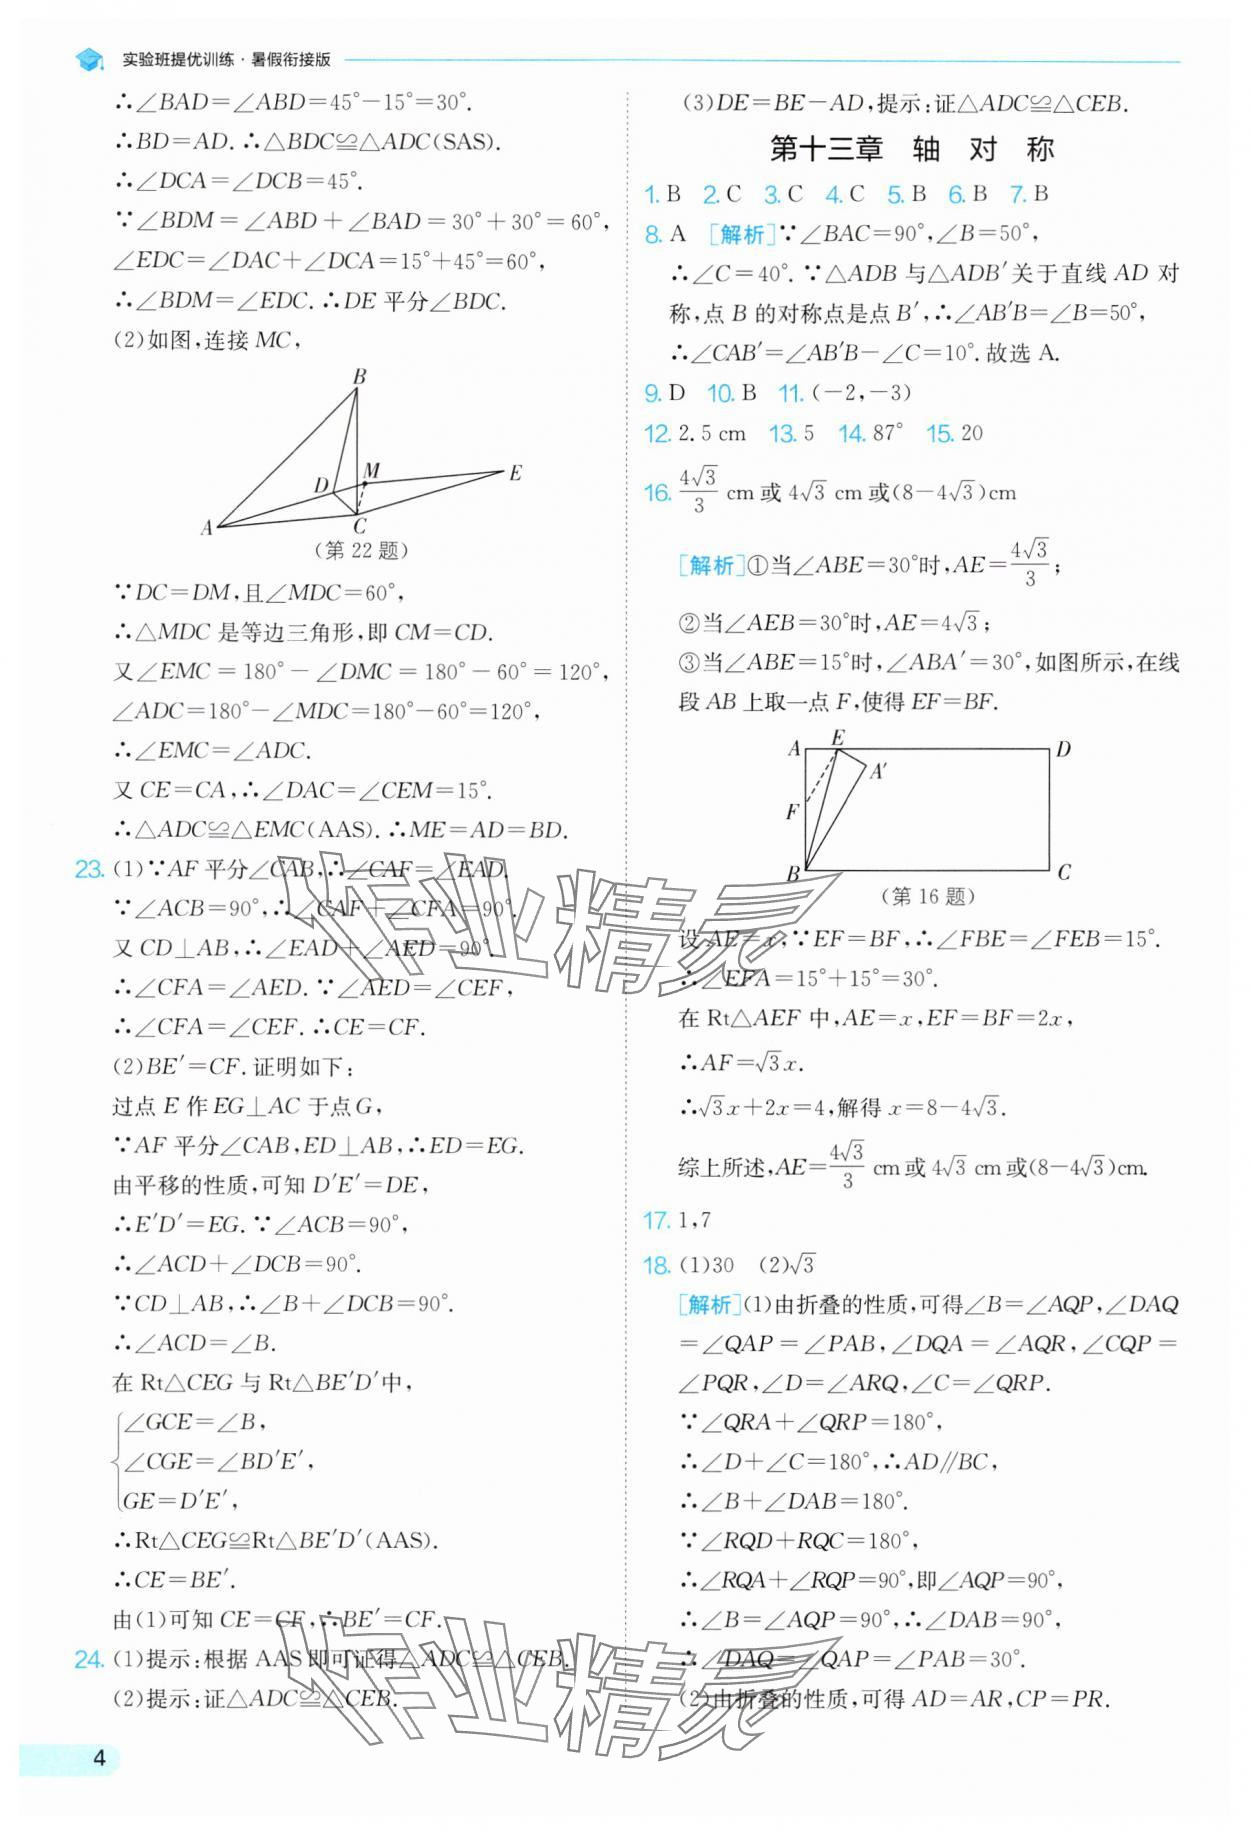 实验班提优训练·暑假衔接版
∴∠BAD=∠ABD=45°-15°=30°.
∴BD=AD.∴△BDC≌△ADC(SAS).
∴∠DCA=∠DCB=45°.
∵∠BDM=∠ABD+∠BAD=30°+30°=60°,
∠EDC=∠DAC+∠DCA=15°+45°=60°,
∴∠BDM=∠EDC.∴DE平分∠BDC.
(2)如图,连接MC,
B
D
M
E
A
C
(第22题)
∵DC=DM,且∠MDC=60°,
∴△MDC是等边三角形,即CM=CD.
又∠EMC=180°-∠DMC=180°-60°=120°,
∠ADC=180°-∠MDC=180°-60°=120°,
∴∠EMC=∠ADC.
又CE=CA,∴∠DAC=∠CEM=15°.
∴△ADC≌△EMC(AAS).∴ME=AD=BD.
23. (1)∵AF平分∠CAB,∴∠CAF=∠EAD.
∵∠ACB=90°,∴∠CAF+∠CFA=90°.
又CD⊥AB,∴∠EAD+∠AED=90°.
∴∠CFA=∠AED.∵∠AED=∠CEF,
∴∠CFA=∠CEF.∴CE=CF.
(2)BE′=CF.证明如下:
过点E作EG⊥AC于点G,
∵AF平分∠CAB,ED⊥AB,∴ED=EG.
由平移的性质,可知D′E′=DE,
∴E′D′=EG.∵∠ACB=90°,
∴∠ACD+∠DCB=90°.
∵CD⊥AB,∴∠B+∠DCB=90°.
∴∠ACD=∠B.
在Rt△CEG与Rt△BE′D′中,
∠GCE=∠B,
∠CGE=∠BD′E′,
GE=D′E′,
∴Rt△CEG≌Rt△BE′D′(AAS).
∴CE=BE′.
由(1)可知CE=CF,∴BE′=CF.
24. (1)提示:根据AAS即可证得△ADC≌△CEB.
(2)提示:证△ADC≌△CEB.
4
(3)DE=BE-AD,提示:证△ADC≌△CEB.
第十三章 轴 对 称
1. B 2. C 3. C 4. C 5. B 6. B 7. B
8. A [解析]∵∠BAC=90°,∠B=50°,
∴∠C=40°.∵△ADB与△ADB′关于直线AD对
称,点B的对称点是点B′,∴∠AB′B=∠B=50°,
∴∠CAB′=∠AB′B-∠C=10°.故选A.
9. D 10. B 11. (-2,-3)
12. 2.5 cm 13. 5 14. 87° 15. 20
16. 4√3/3 cm或4√3 cm或(8-4√3)cm
[解析]①当∠ABE=30°时,AE=4√3/3;
②当∠AEB=30°时,AE=4√3;
③当∠ABE=15°时,∠ABA′=30°,如图所示,在线
段AB上取一点F,使得EF=BF.
A
E
D
A′
F
B
C
(第16题)
设AE=x,∵EF=BF,∴∠FBE=∠FEB=15°.
∴∠EFA=15°+15°=30°.
在Rt△AEF中,AE=x,EF=BF=2x,
∴AF=√3x.
∴√3x+2x=4,解得x=8-4√3.
综上所述,AE=4√3/3 cm或4√3 cm或(8-4√3)cm.
17. 1,7
18. (1)30 (2)√3
[解析](1)由折叠的性质,可得∠B=∠AQP,∠DAQ
=∠QAP=∠PAB,∠DQA=∠AQR,∠CQP=
∠PQR,∠D=∠ARQ,∠C=∠QRP.
∵∠QRA+∠QRP=180°,
∴∠D+∠C=180°,∴AD∥BC,
∴∠B+∠DAB=180°.
∵∠RQD+RQC=180°,
∴∠RQA+∠RQP=90°,即∠AQP=90°,
∴∠B=∠AQP=90°,∴∠DAB=90°,
∴∠DAQ=∠QAP=∠PAB=30°.
(2)由折叠的性质,可得AD=AR,CP=PR.
作业精灵
作业精灵